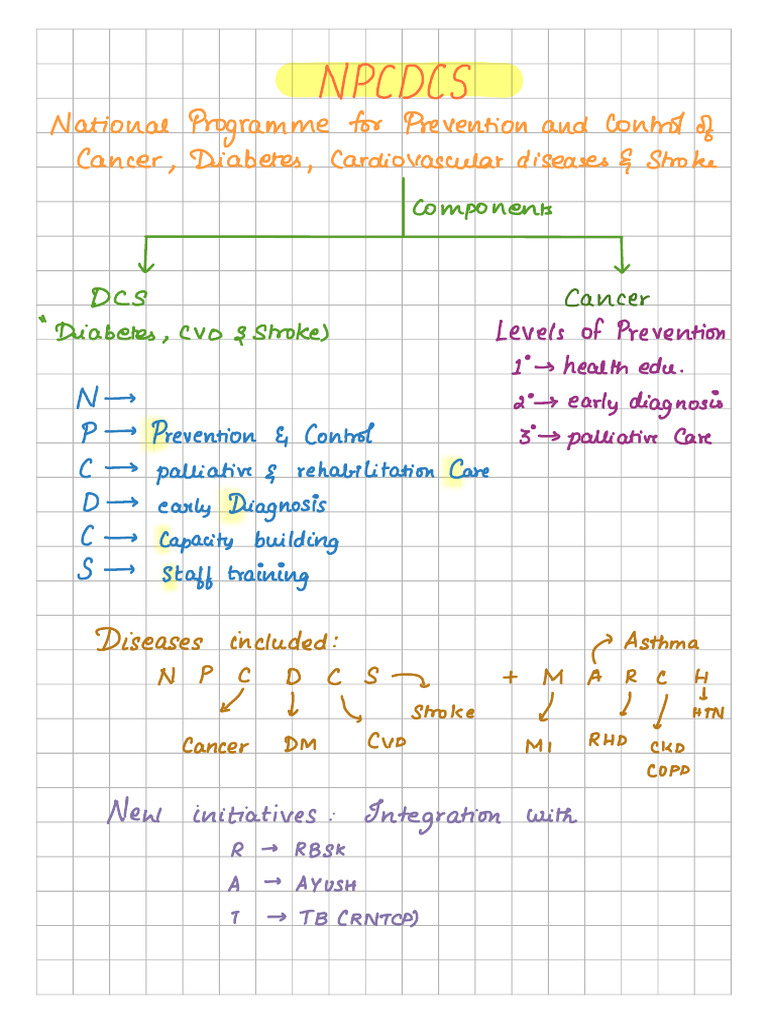 NPCDCS
National Programme for Prevention and Control of
Cancer, Diabetes, Cardiovascular diseases & Stroke
Components
DCS
"Diabetes, CVD & Stroke)
N →
P → Prevention & Control
C → palliative & rehabilitation Care
D → early Diagnosis
C → Capacity building
S → Staff training
Cancer
Levels of Prevention
1° → health edu.
2° → early diagnosis
3° → palliative Care
Diseases included:
N P C D C S → Stroke
Cancer DM CVD
+ M A R C H
Asthma
HTN
MI RHD CKD
COPD
New initiatives: Integration with
R → RBSK
A → AYUSH
T → TB (RNTCP)